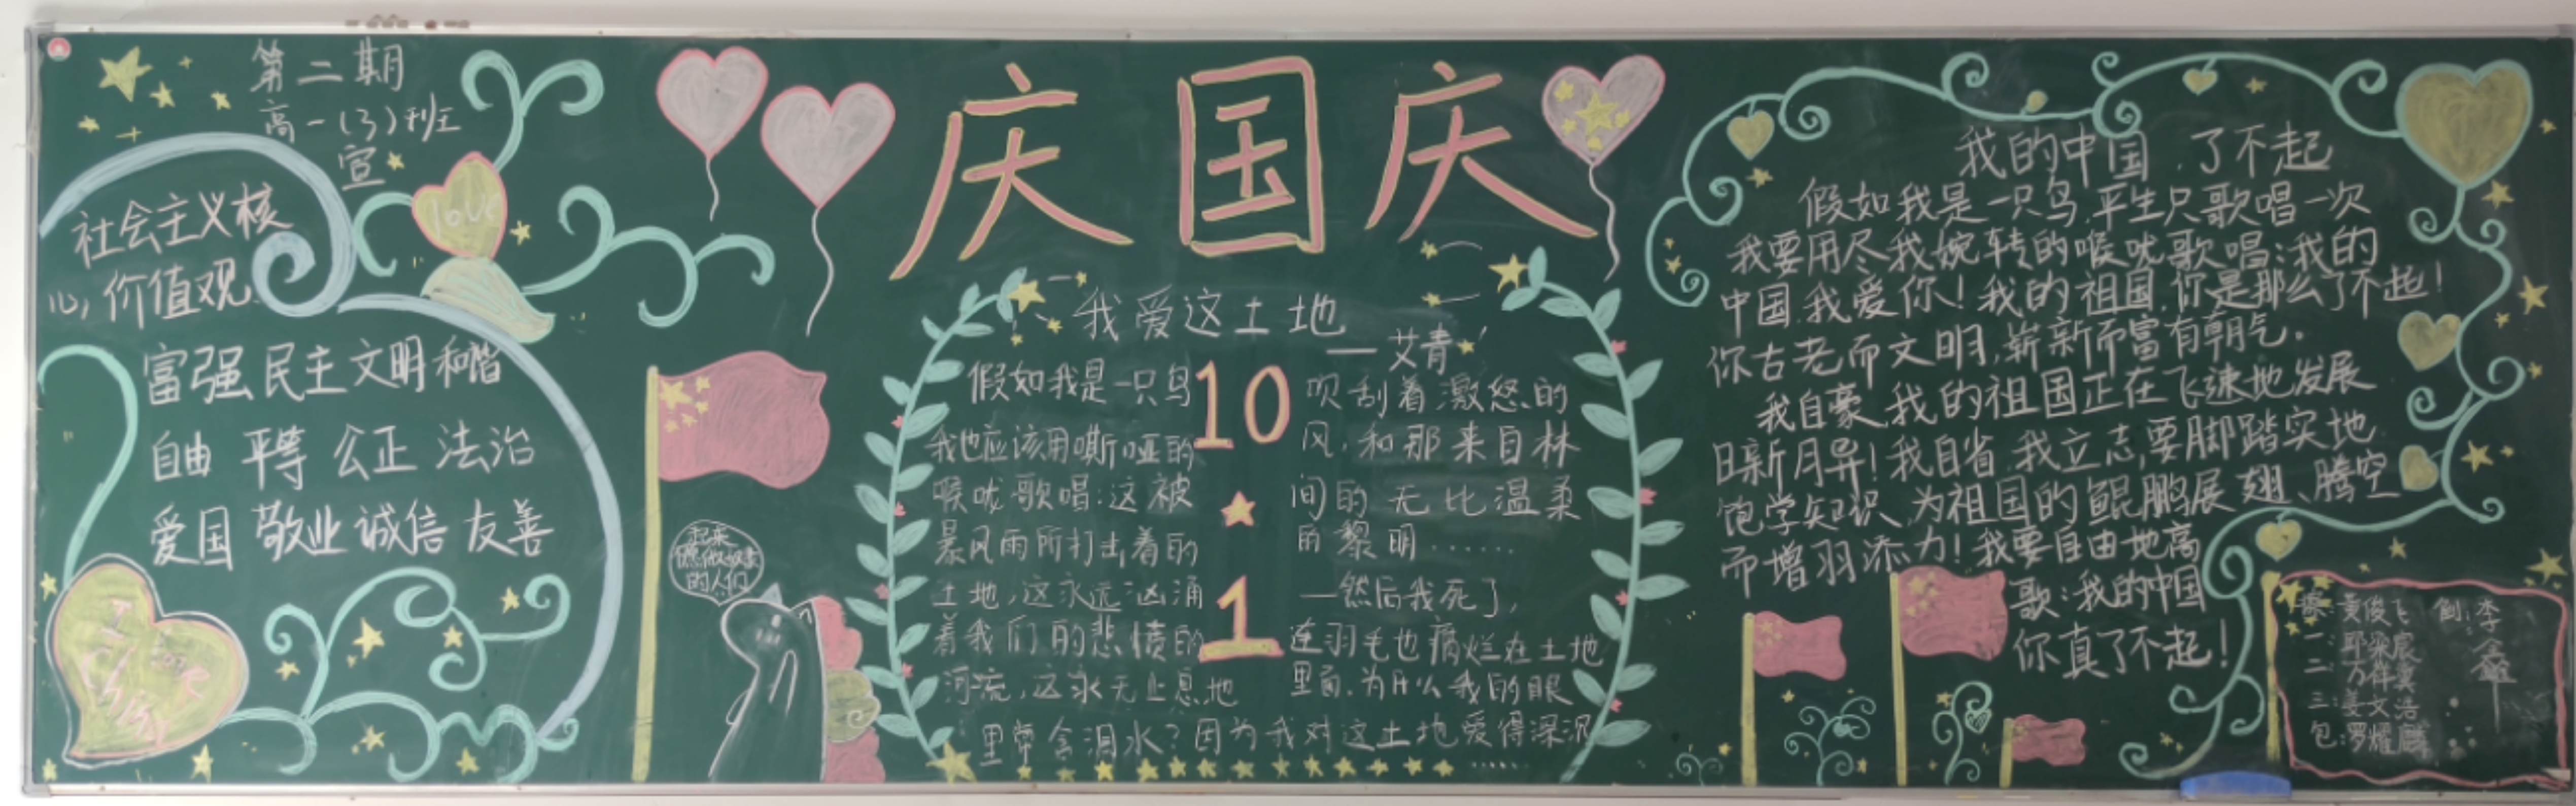 第二期
高一(3)班
宣
love
社会主义核
心价值观
富强 民主 文明 和谐
自由 平等 公正 法治
爱国 敬业 诚信 友善
I love
China
庆国庆
起来
不愿做奴隶
的人们
我爱这土地
——艾青
假如我是一只鸟
我也应该用嘶哑的
喉咙歌唱:这被
暴风雨所打击着的
土地,这永远汹涌
着我们的悲愤的
河流,这永无止息地
10
1
吹刮着激怒的
风,和那来自林
间的无比温柔
的黎明……
—然后我死了,
连羽毛也腐烂在土地
里面.为什么我的眼
里常含泪水?因为我对这土地爱得深沉……
我的中国,了不起
假如我是一只鸟,平生只歌唱一次
我要用尽我婉转的喉咙歌唱:我的
中国,我爱你!我的祖国,你是那么了不起!
你古老而文明,崭新而富有朝气.
我自豪,我的祖国正在飞速地发展
日新月异!我自省,我立志,要脚踏实地
饱学知识,为祖国的鲲鹏展翅、腾空
而增羽添力!我要自由地高
歌:我的中国
你真了不起!
黄俊飞
一:
二:万
三:姜文浩
包:罗耀
创:李